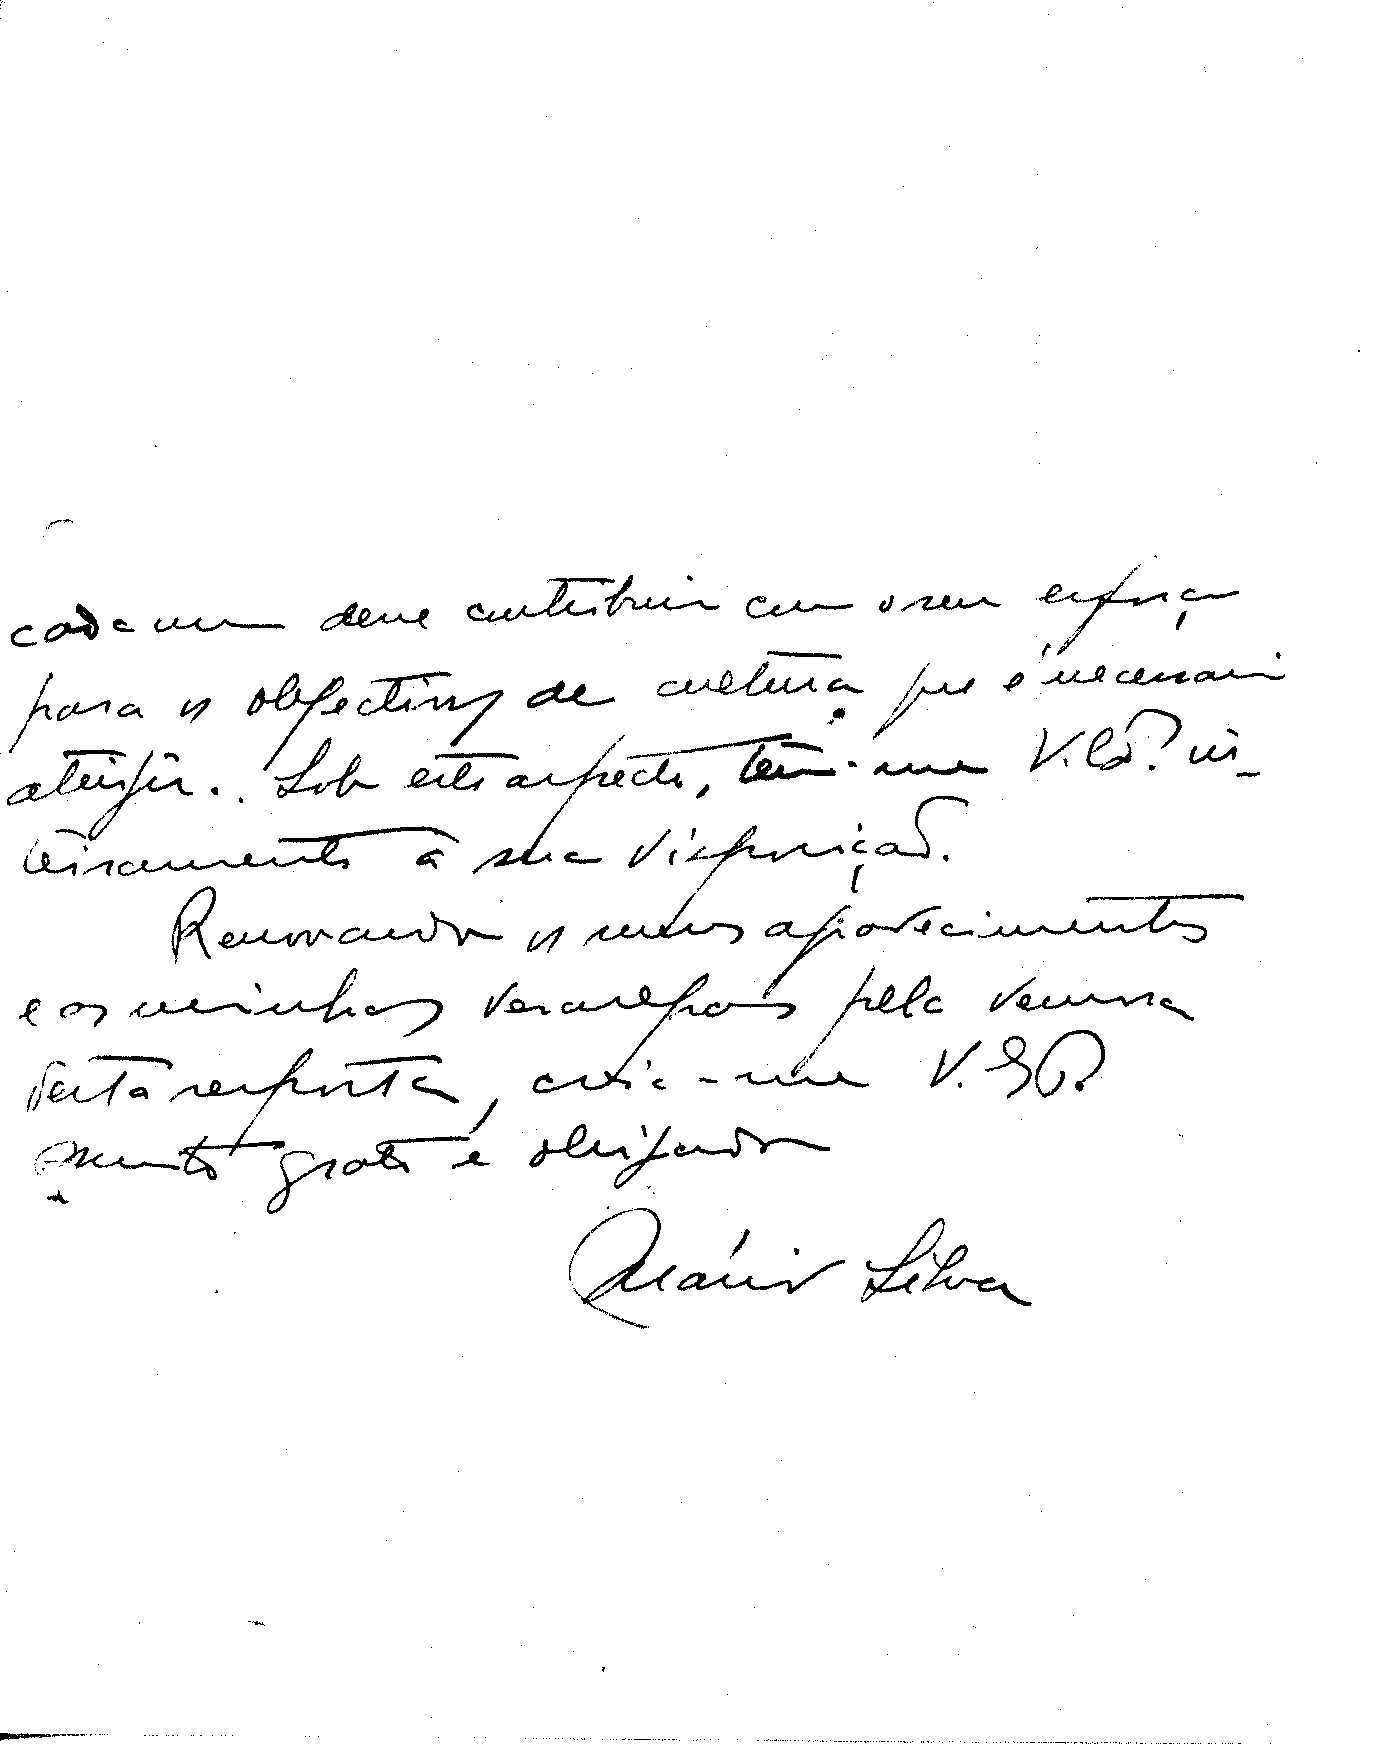 cada um deve contribuir com o seu esforço
para os objectivos de cultura que é necessario
atingir. Sob este aspecto, tem-me V. Ex.ª in-
teiramente à sua disposição.
Renovando os meus agradecimentos
e as minhas desculpas pela demora
desta resposta, creia-me V. Ex.ª
muito grato e obrigado
Mário Silva